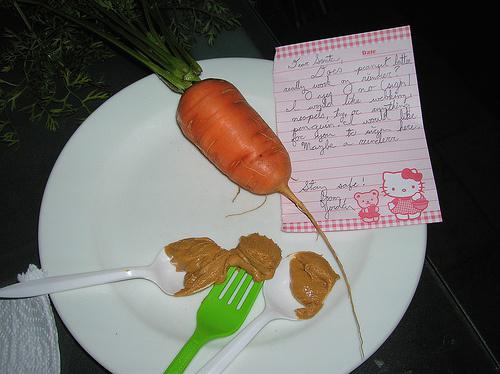 Date
Dear Santa,
Does peanut butter
really work on reindeer?
[ ] yes [ ] no [ sign ]
I would like webkinz,
neopets, ty, or anything
penguin. I would like
for you to sign here.
Maybe a reindeer
Stay safe!
from,